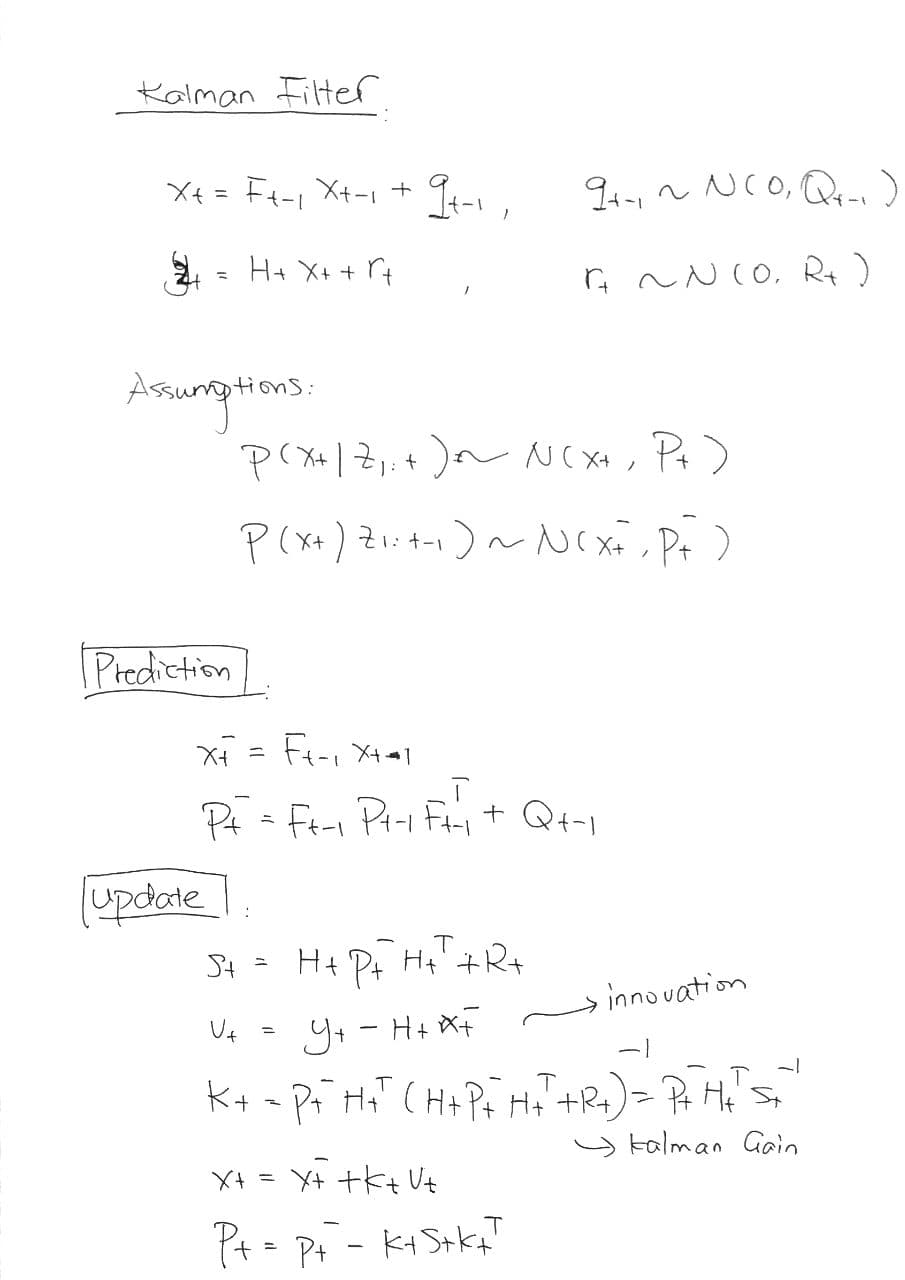 Kalman Filter
xₜ = Fₜ₋₁ xₜ₋₁ + qₜ₋₁ , qₜ₋₁ ~ N(0, Qₜ₋₁)
= Hₜ xₜ + rₜ , rₜ ~ N(0, Rₜ)
Assumptions:
P(xₜ | z₁:ₜ) ~ N(xₜ, Pₜ)
P(xₜ) z₁:ₜ₋₁) ~ N(xₜ⁻, Pₜ⁻)
Prediction :
xₜ⁻ = Fₜ₋₁ xₜ₋₁
Pₜ⁻ = Fₜ₋₁ Pₜ₋₁ Fₜ₋₁ᵀ + Qₜ₋₁
update :
Sₜ = Hₜ Pₜ⁻ Hₜᵀ + Rₜ
Vₜ = yₜ − Hₜ xₜ⁻ → innovation
Kₜ = Pₜ⁻ Hₜᵀ (Hₜ Pₜ⁻ Hₜᵀ + Rₜ)⁻¹ = Pₜ⁻ Hₜᵀ Sₜ⁻¹
↳ kalman Gain
xₜ = xₜ⁻ + kₜ Vₜ
Pₜ = Pₜ⁻ − Kₜ Sₜ kₜᵀ